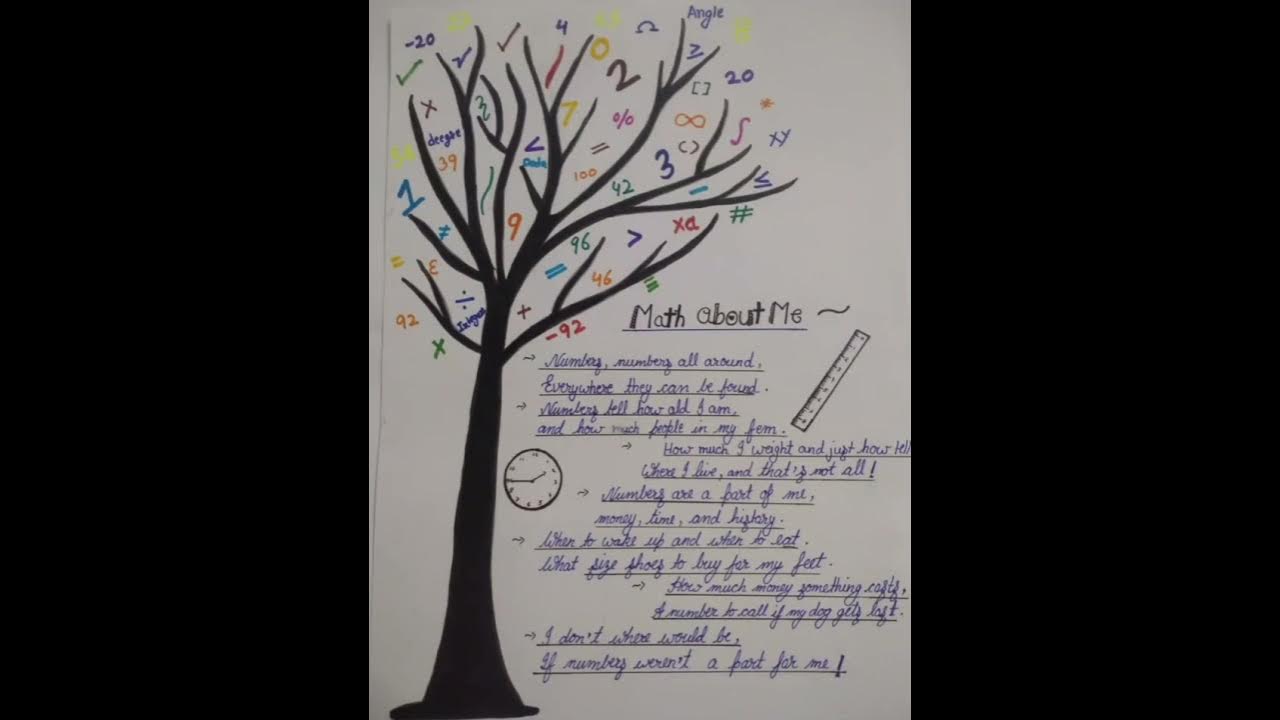 Angle
-20
4
Ω
≥
0
2
[ ]
20
✓
x
7
%
∞
*
∫
xy
deegre
39
<
=
100
3
( )
1
42
-
≤
#
≠
9
96
>
xa
=
ε
÷
=
46
≡
92
Integer
+
-92
x
Math about Me ~
→ Numbers, numbers all around,
Everywhere they can be found.
→ Numbers tell how old I am,
and how much people in my fem.
→ How much I weight and just how tell
Where I live, and that's not all!
→ Numbers are a part of me,
money, time, and history.
→ When to wake up and when to eat.
What size shoes to buy for my feet.
→ How much money something costs,
A number to call if my dog gets lost.
→ I don't where would be,
If numbers weren't a part for me!